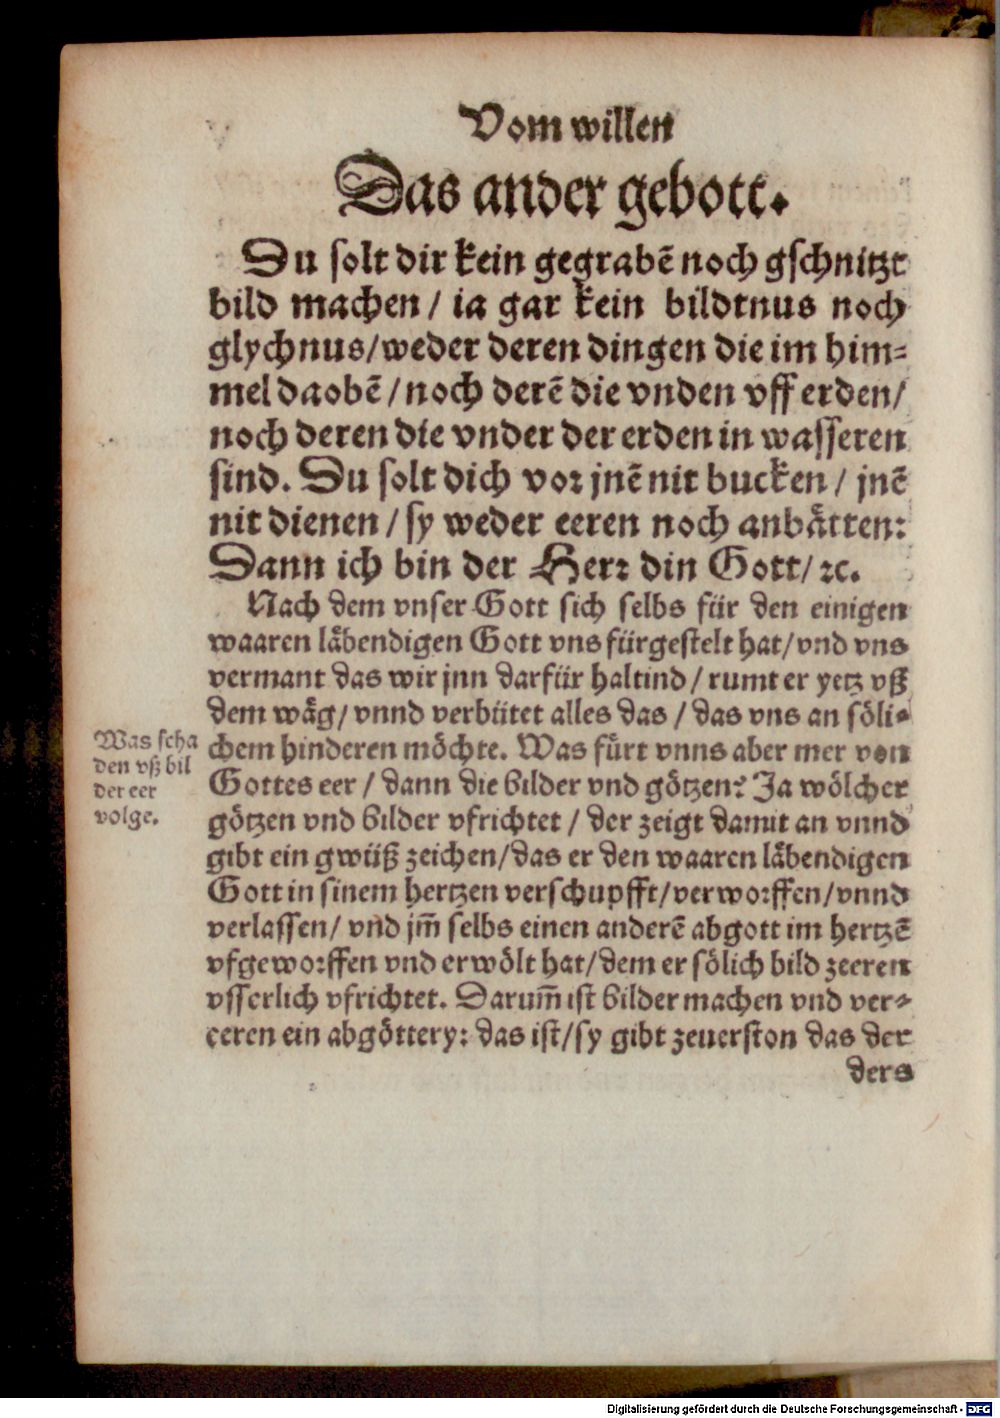 Vom willen
Das ander gebott.
Du solt dir kein gegrabẽ noch gschnitzt
bild machen / ia gar kein bildtnus noch
glychnus/weder deren dingen die im him⸗
mel daobẽ / noch derẽ die vnden vff erden/
noch deren die vnder der erden in wasseren
sind. Du solt dich vor jnẽ nit bucken / jnẽ
nit dienen / sy weder eeren noch anbåtten:
Dann ich bin der Herr din Gott/ ꝛc.
Nach dem vnser Gott sich selbs für den einigen
waaren låbendigen Gott vns fürgestelt hat/vnd vns
vermant das wir jnn darfür haltind / rumt er yetz vß
dem wåg/ vnnd verbütet alles das / das vns an söli⸗
chem hinderen möchte. Was fürt vnns aber mer von
Gottes eer / dann die bilder vnd götzen? Ja wölcher
götzen vnd bilder vfrichtet / der zeigt damit an vnnd
gibt ein gwüß zeichen/das er den waaren låbendigen
Gott in sinem hertzen verschupfft/verworffen/vnnd
verlassen/ vnd jm̃ selbs einen anderẽ abgott im hertzẽ
vfgeworffen vnd erwölt hat/dem er sölich bild zeeren
vsserlich vfrichtet. Darum̃ ist bilder machen vnd ver⸗
eeren ein abgöttery: das ist/sy gibt zeuerston das der
ders
Was scha
den vß bil
der eer
volge.
Digitalisierung gefördert durch die Deutsche Forschungsgemeinschaft - DFG